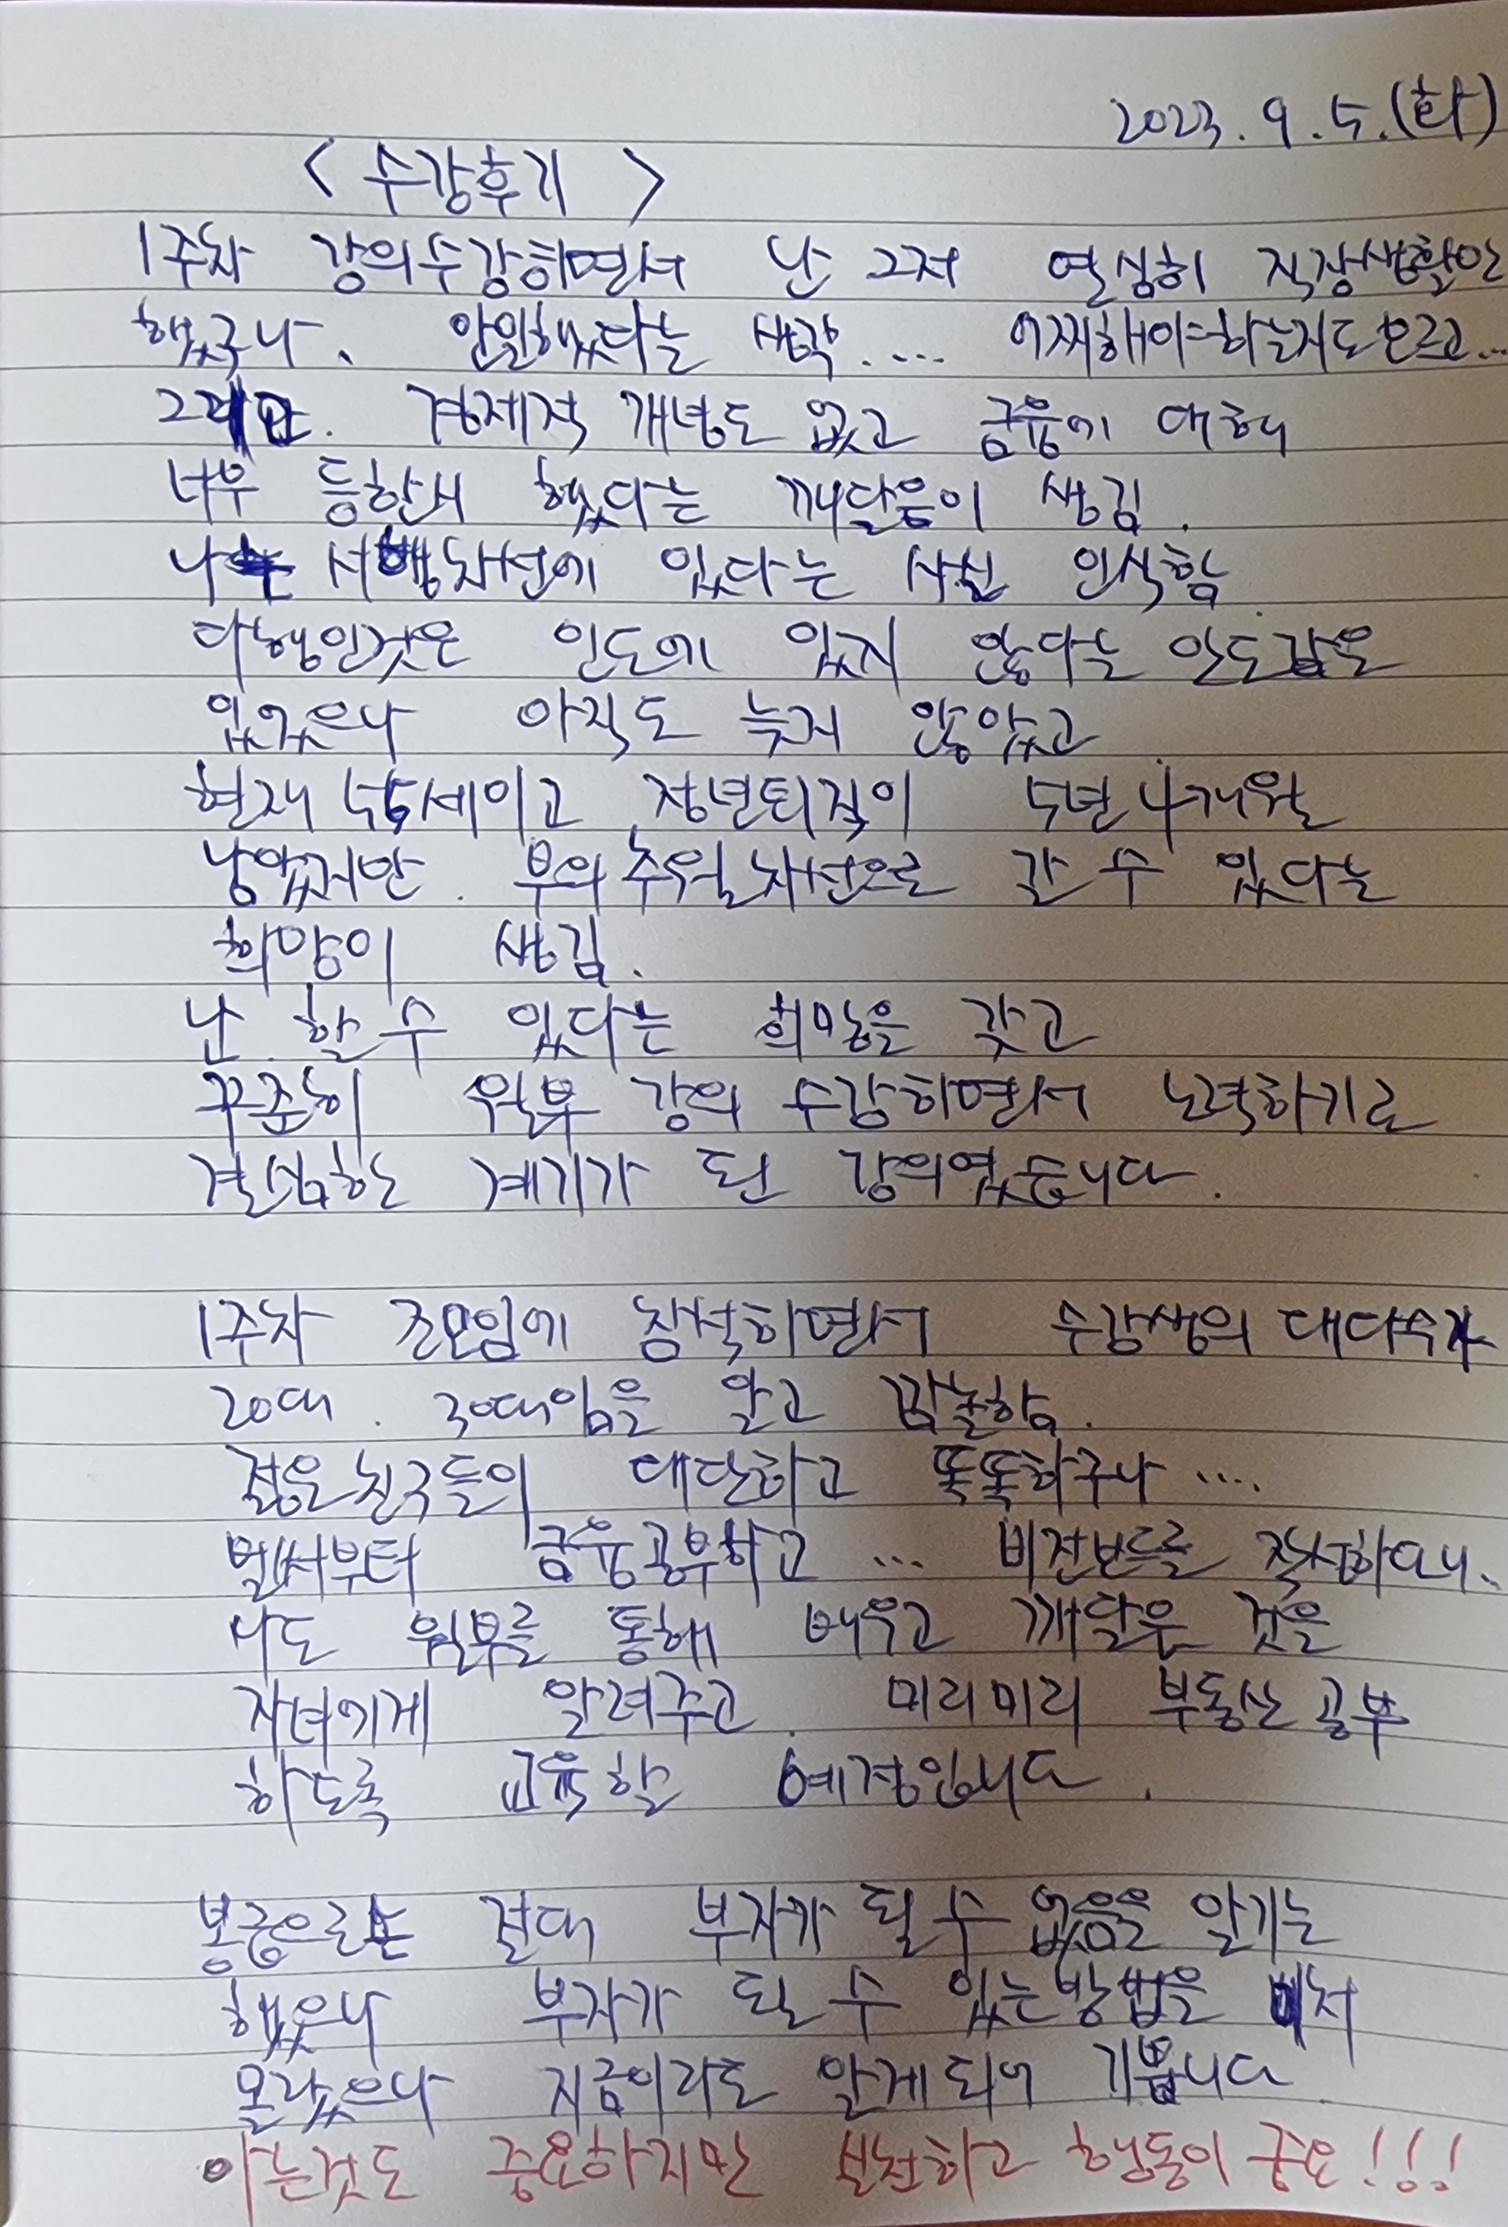 2023. 9. 5. (화)
< 수강후기 >
1주차 강의수강하면서 난 그저 열심히 직장생활만
했구나. 안일했다는 생각.... 어찌해야하는지도 모르고...
경제적 개념도 없고 금융에 대해
너무 등한시 했다는 깨달음이 생김.
나는 서행차선에 있다는 사실 인식함.
다행인것은 인도에 있지 않다는 안도감은
있었으나 아직도 늦지 않았고
현재 55세이고 정년퇴직이 5년 4개월
남았지만. 부의 추월차선으로 갈 수 있다는
희망이 생김.
난 할 수 있다는 희망을 갖고
꾸준히 월부 강의 수강하면서 노력하기로
결심하는 계기가 된 강의였습니다.
1주차 조모임에 참석하면서 수강생의 대다수가
20대. 30대임을 알고 깜놀함.
젊은친구들이 대단하고 똑똑하구나 ....
벌써부터 금융공부하고 ... 비전보드를 작성하다니..
나도 월부를 통해 배우고 깨달은 것을
자녀에게 알려주고. 미리미리 부동산 공부
하도록 교육할 예정입니다.
봉급으론 절대 부자가 될 수 없음을 알기는
했으나 부자가 될 수 있는방법을 미처
몰랐으나 지금이라도 알게되어 기쁩니다
아는것도 중요하지만 실천하고 행동이 중요!!!